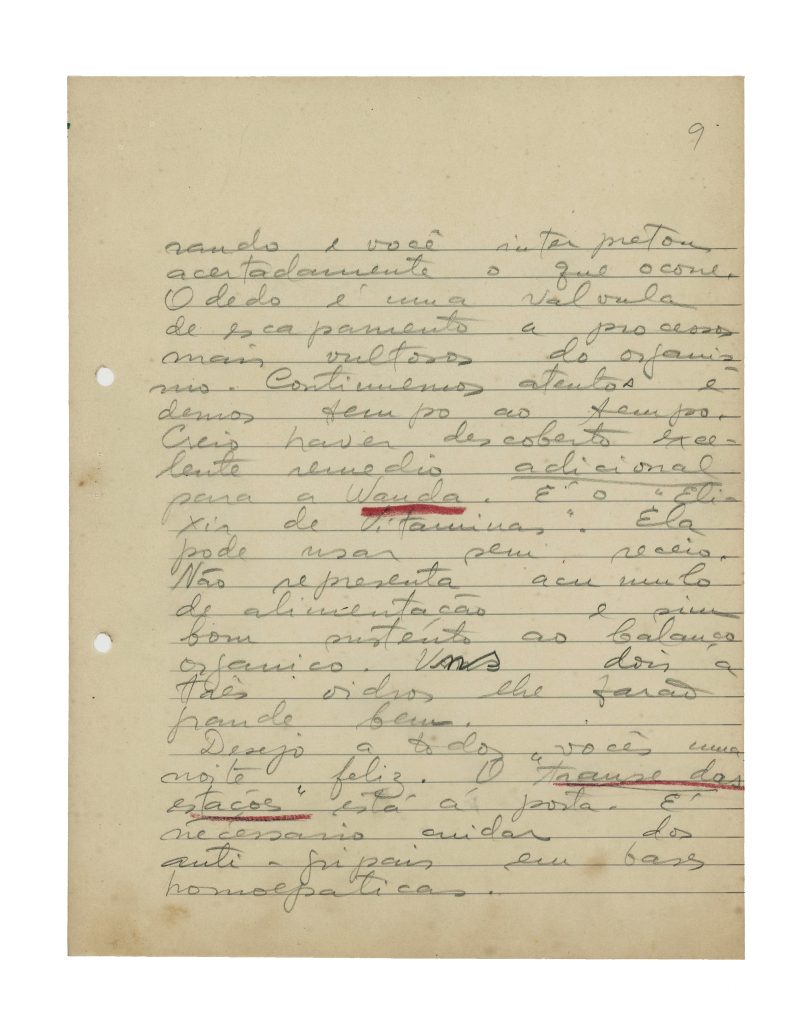 9
rando e você interpretou
acertadamente o que ocorre.
O dedo é uma valvula
de escapamento a processos
mais vultosos do organis-
mo. Continuemos atentos e
demos tempo ao tempo.
Creio haver descoberto exce-
lente remedio adicional
para a Wanda. É o "Eli-
xir de Vitaminas". Ela
pode usar sem receio.
Não representa acumulo
de alimentação e sim
bom sustento ao balanço
organico. Uns dois á
três vidros lhe farão
grande bem.
Desejo a todos vocês uma
noite feliz. O "transe das
estações" está á porta. É
necessario cuidar dos
anti-gripais em bases
homoepaticas.